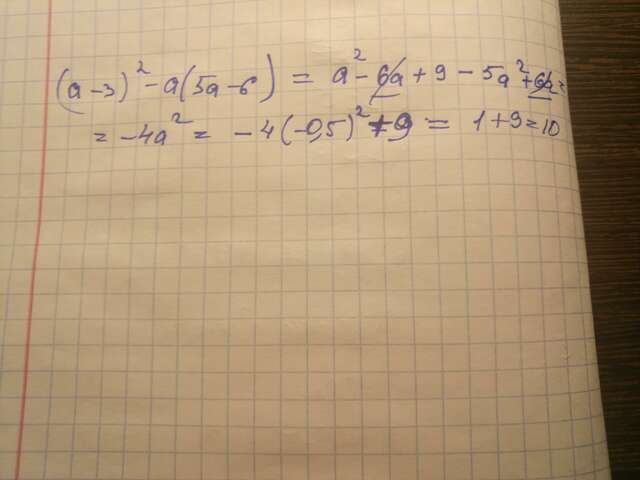 (a-3)² - a(5a-6) = a² - 6a + 9 - 5a² + 6a =
= -4a² = -4(-0,5)² + 9 = 1+9=10